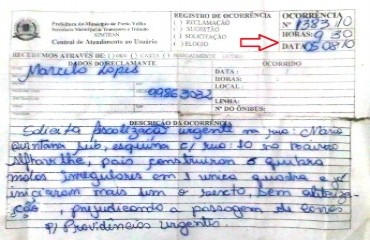 Prefeitura do Município de Porto Velho
Secretaria Municipal de Transportes e Trânsito
SEMTRAN
Central de Atendimento ao Usuário
REGISTRO DE OCORRÊNCIA
( ) RECLAMAÇÃO
( ) SUGESTÃO
( ) SOLICITAÇÃO
( ) ELOGIO
OCORRÊNCIA
Nº 1383/10
HORAS: 9 30
DATA 05 08 10
RECEBEMOS ATRAVÉS DE
DADOS DO RECLAMANTE
OCORRIDO
Marcelo Lopes
DATA:
HORA:
LOCAL:
LINHA:
Nº DO ÔNIBUS:
DESCRIÇÃO DA OCORRÊNCIA
Solicita fiscalização urgente na rua: Mario
Quintana sub, esquina c/ rua: 10 no Bairro
pois construiram o quebra
molas irregulares em 1 unica quadra e já
iniciaram mais um o resto, sem autoriza-
ção, prejudicando a passagem de carros
p/ Providências Urgentes.